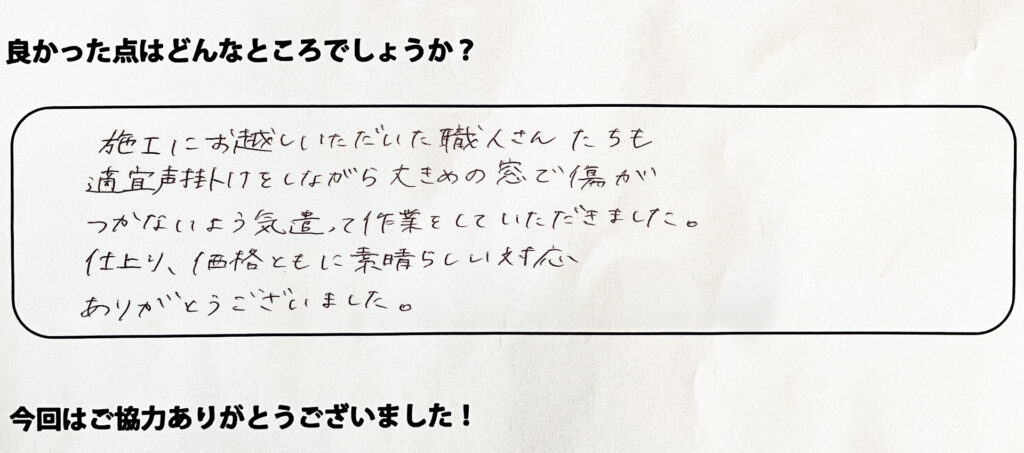 良かった点はどんなところでしょうか？
施工にお越しいただいた職人さんたちも
適宜声掛けをしながら大きめの窓で傷が
つかないよう気遣って作業をしていただきました。
仕上り、価格ともに素晴らしい対応
ありがとうございました。
今回はご協力ありがとうございました！